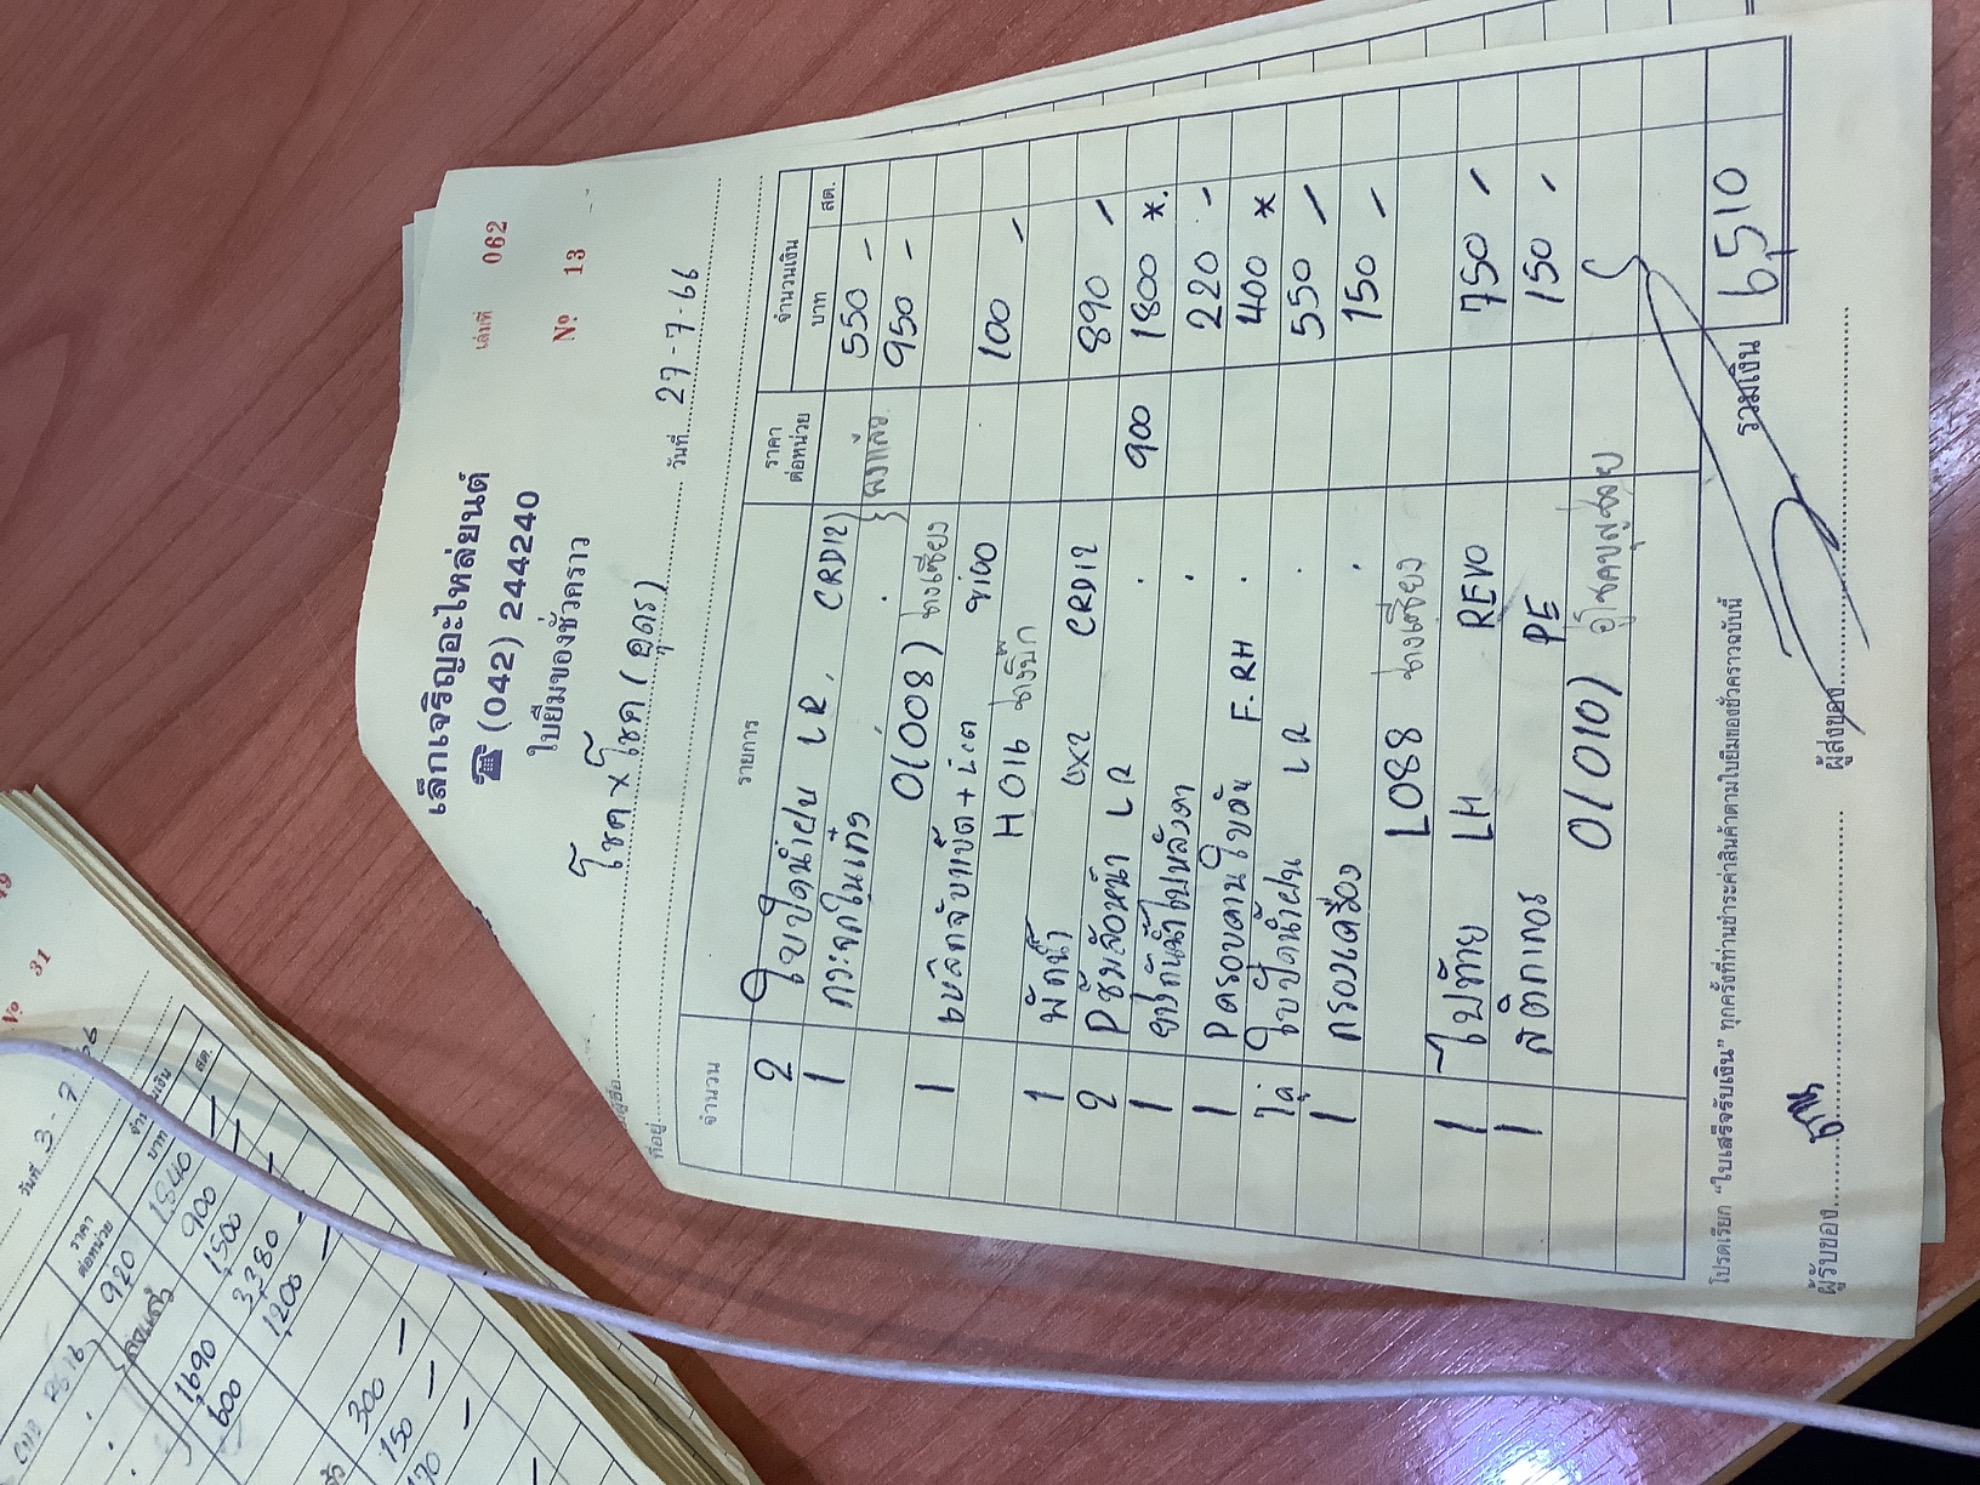 เล็กเจริญอะไหล่ยนต์
☎ (042) 244240
ใบยืมของชั่วคราว
เล่มที่ 062
Nº 13
โชค x โชค (อุดร) วันที่ 27-7-66
ที่อยู่
จำนวน รายการ ราคาต่อหน่วย จำนวนเงิน บาท สต.
2 ใบปัดน้ำฝน LR. CRD12 550 -
1 กระจกในเก๋ง . 950 -
0(008) ช่างเซียง
1 + vigo 100 -
H016 ช่างบิ๊ก
1 พัดน้ำ 4x2 CRD12 890 -
2 Pซุ้มล้อหน้า LR . 900 1800 *.
1 ยางกันน้ำใบหลังคา . 220 -
1 Pครอบคานใบดัน F.RH . 400 *
1คู่ ใบปัดน้ำฝน LR . 550 -
1 กรองเครื่อง . 150 -
L088 ช่างเซียง
1 ไฟท้าย LH REVO 750 -
1 สติกเกอร์ PE 150 -
0(010)
รวมเงิน 6,510
โปรดเรียก "ใบเสร็จรับเงิน" ทุกครั้งที่ท่านชำระค่าสินค้าตามใบยืมของชั่วคราวฉบับนี้
ผู้รับของ ผู้ส่งของ
Nº 31
วันที่ 3-7-66
ราคาต่อหน่วย จำนวนเงิน บาท สต.
920 1840 -
900 -
1,500
1,690 3,380 -
600 1,200 -
300 -
150 -